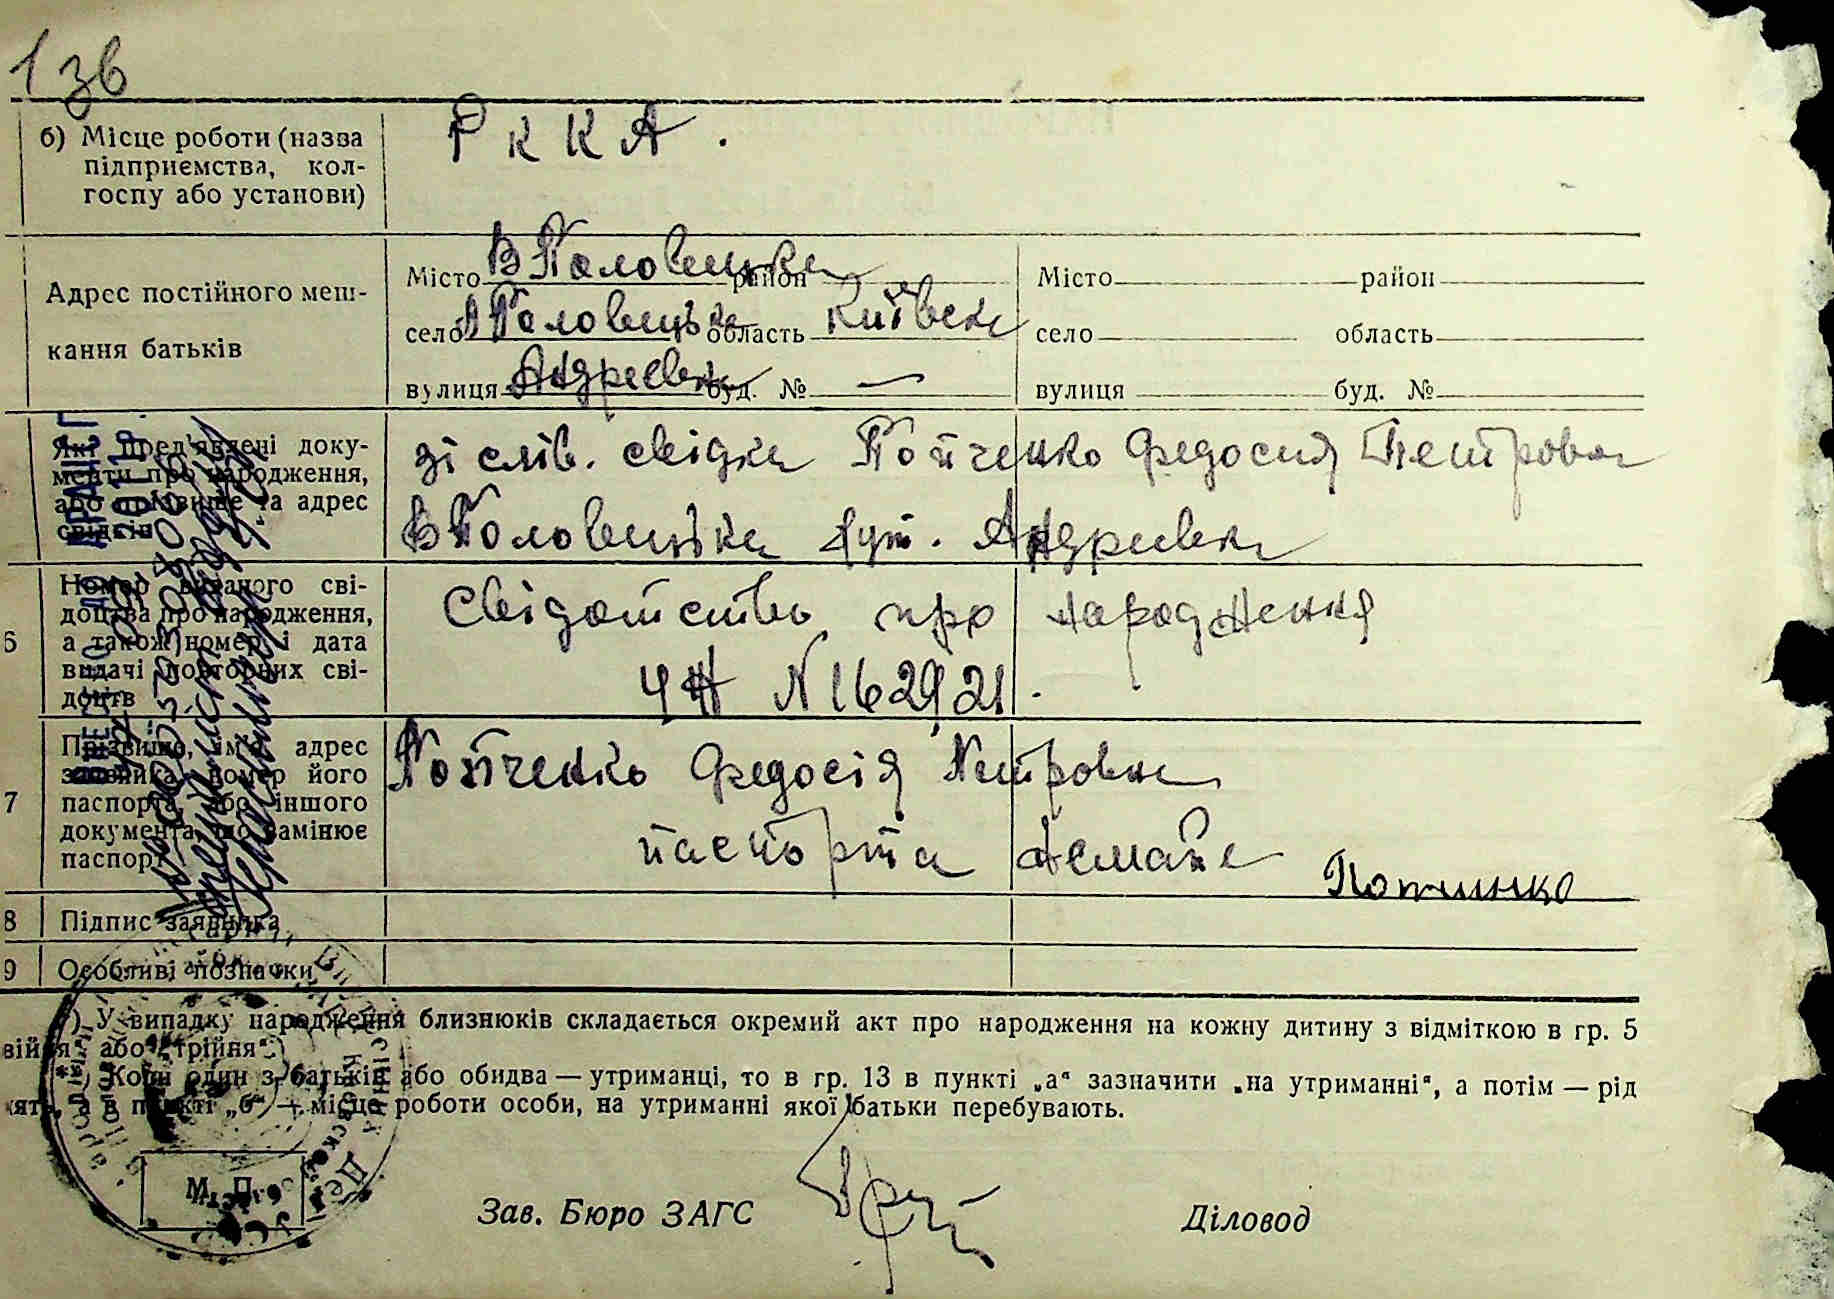 1 зв
б) Місце роботи (назва
підприємства, кол-
госпу або установи)
РККА.
Адрес постійного меш-
кання батьків
Місто В Половецьке район
село В Половецьке область Київськ
вулиця Андреевка буд. № —
Місто район
село область
вулиця буд. №
Які пред'явлені доку-
менти про народження,
або прізвище та адрес
свідків
зі слів. свідка Потченко Федосия Петровна
В Половецька хут. Андреевка
6 Номер виданого сві-
доцтва про народження,
а також номер і дата
видачі повторних сві-
доцтв
Свідотство про народження
ЧЖ N 162921.
7 Прізвище, ім'я, адрес
заявника, номер його
паспорта, або іншого
документа, що замінює
паспорт
Потченко Федосія Петровна
паспорта немає
Потченко
8 Підпис заявника
9 Особливі позначки
) У випадку народження близнюків складається окремий акт про народження на кожну дитину з відміткою в гр. 5
війня або „трійня“.
Коли один з батьків або обидва — утриманці, то в гр. 13 в пункті „а“ зазначити „на утриманні“, а потім — рід
ять, а в пункті „б“ — місце роботи особи, на утриманні якої батьки перебувають.
М. П.
Зав. Бюро ЗАГС
Діловод